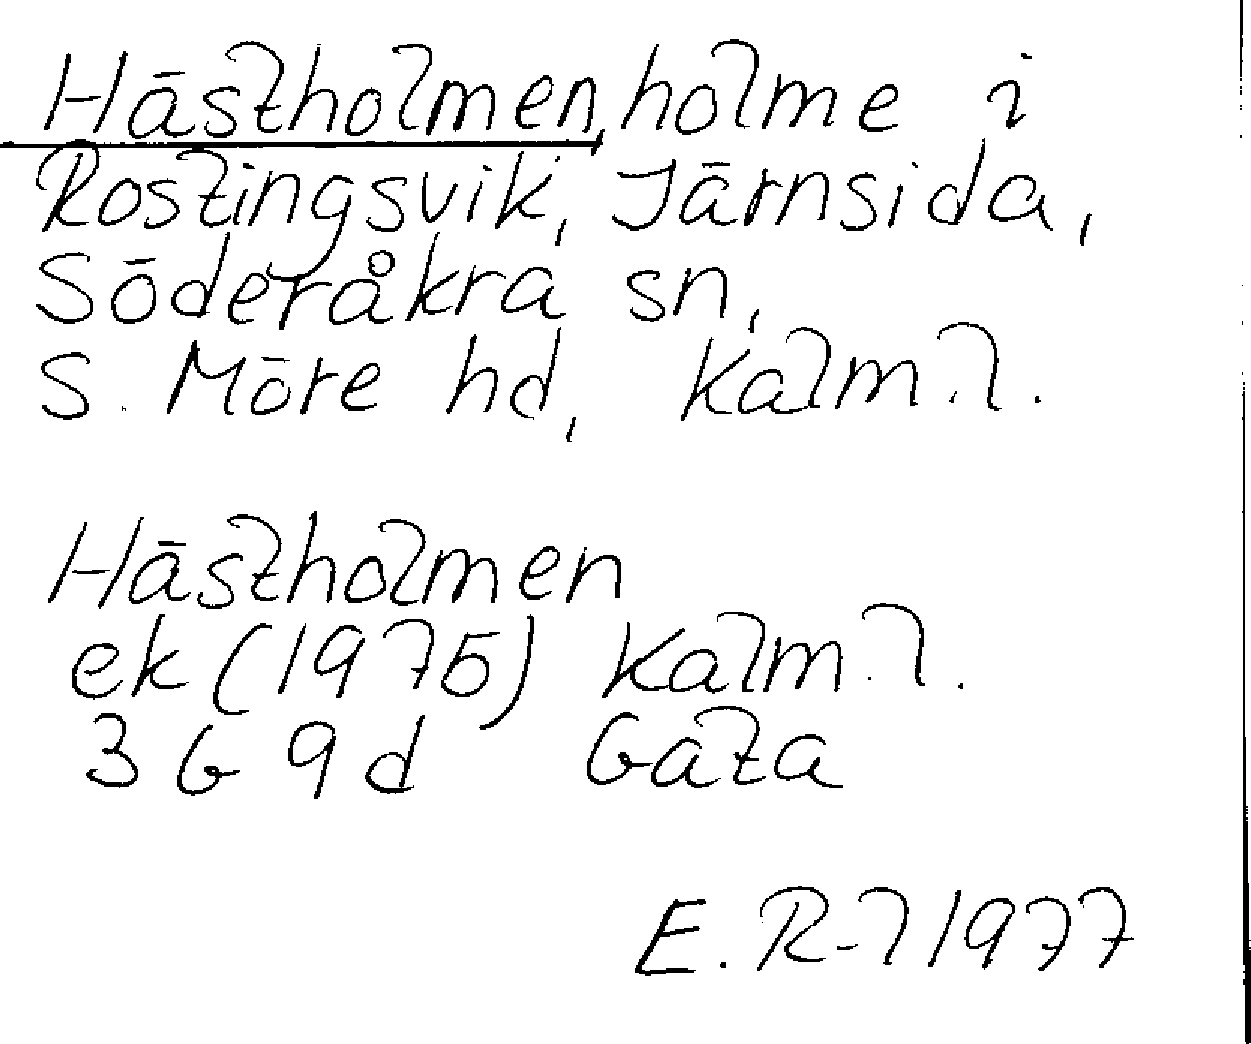 Hästholmen, holme i
Rostingsvik, Järnsida,
Söderåkra sn,
S. Möre hd, Kalm. l.
Hästholmen
ek (1975) Kalm. l.
3 G 9 d Gata
E. R-l 1977